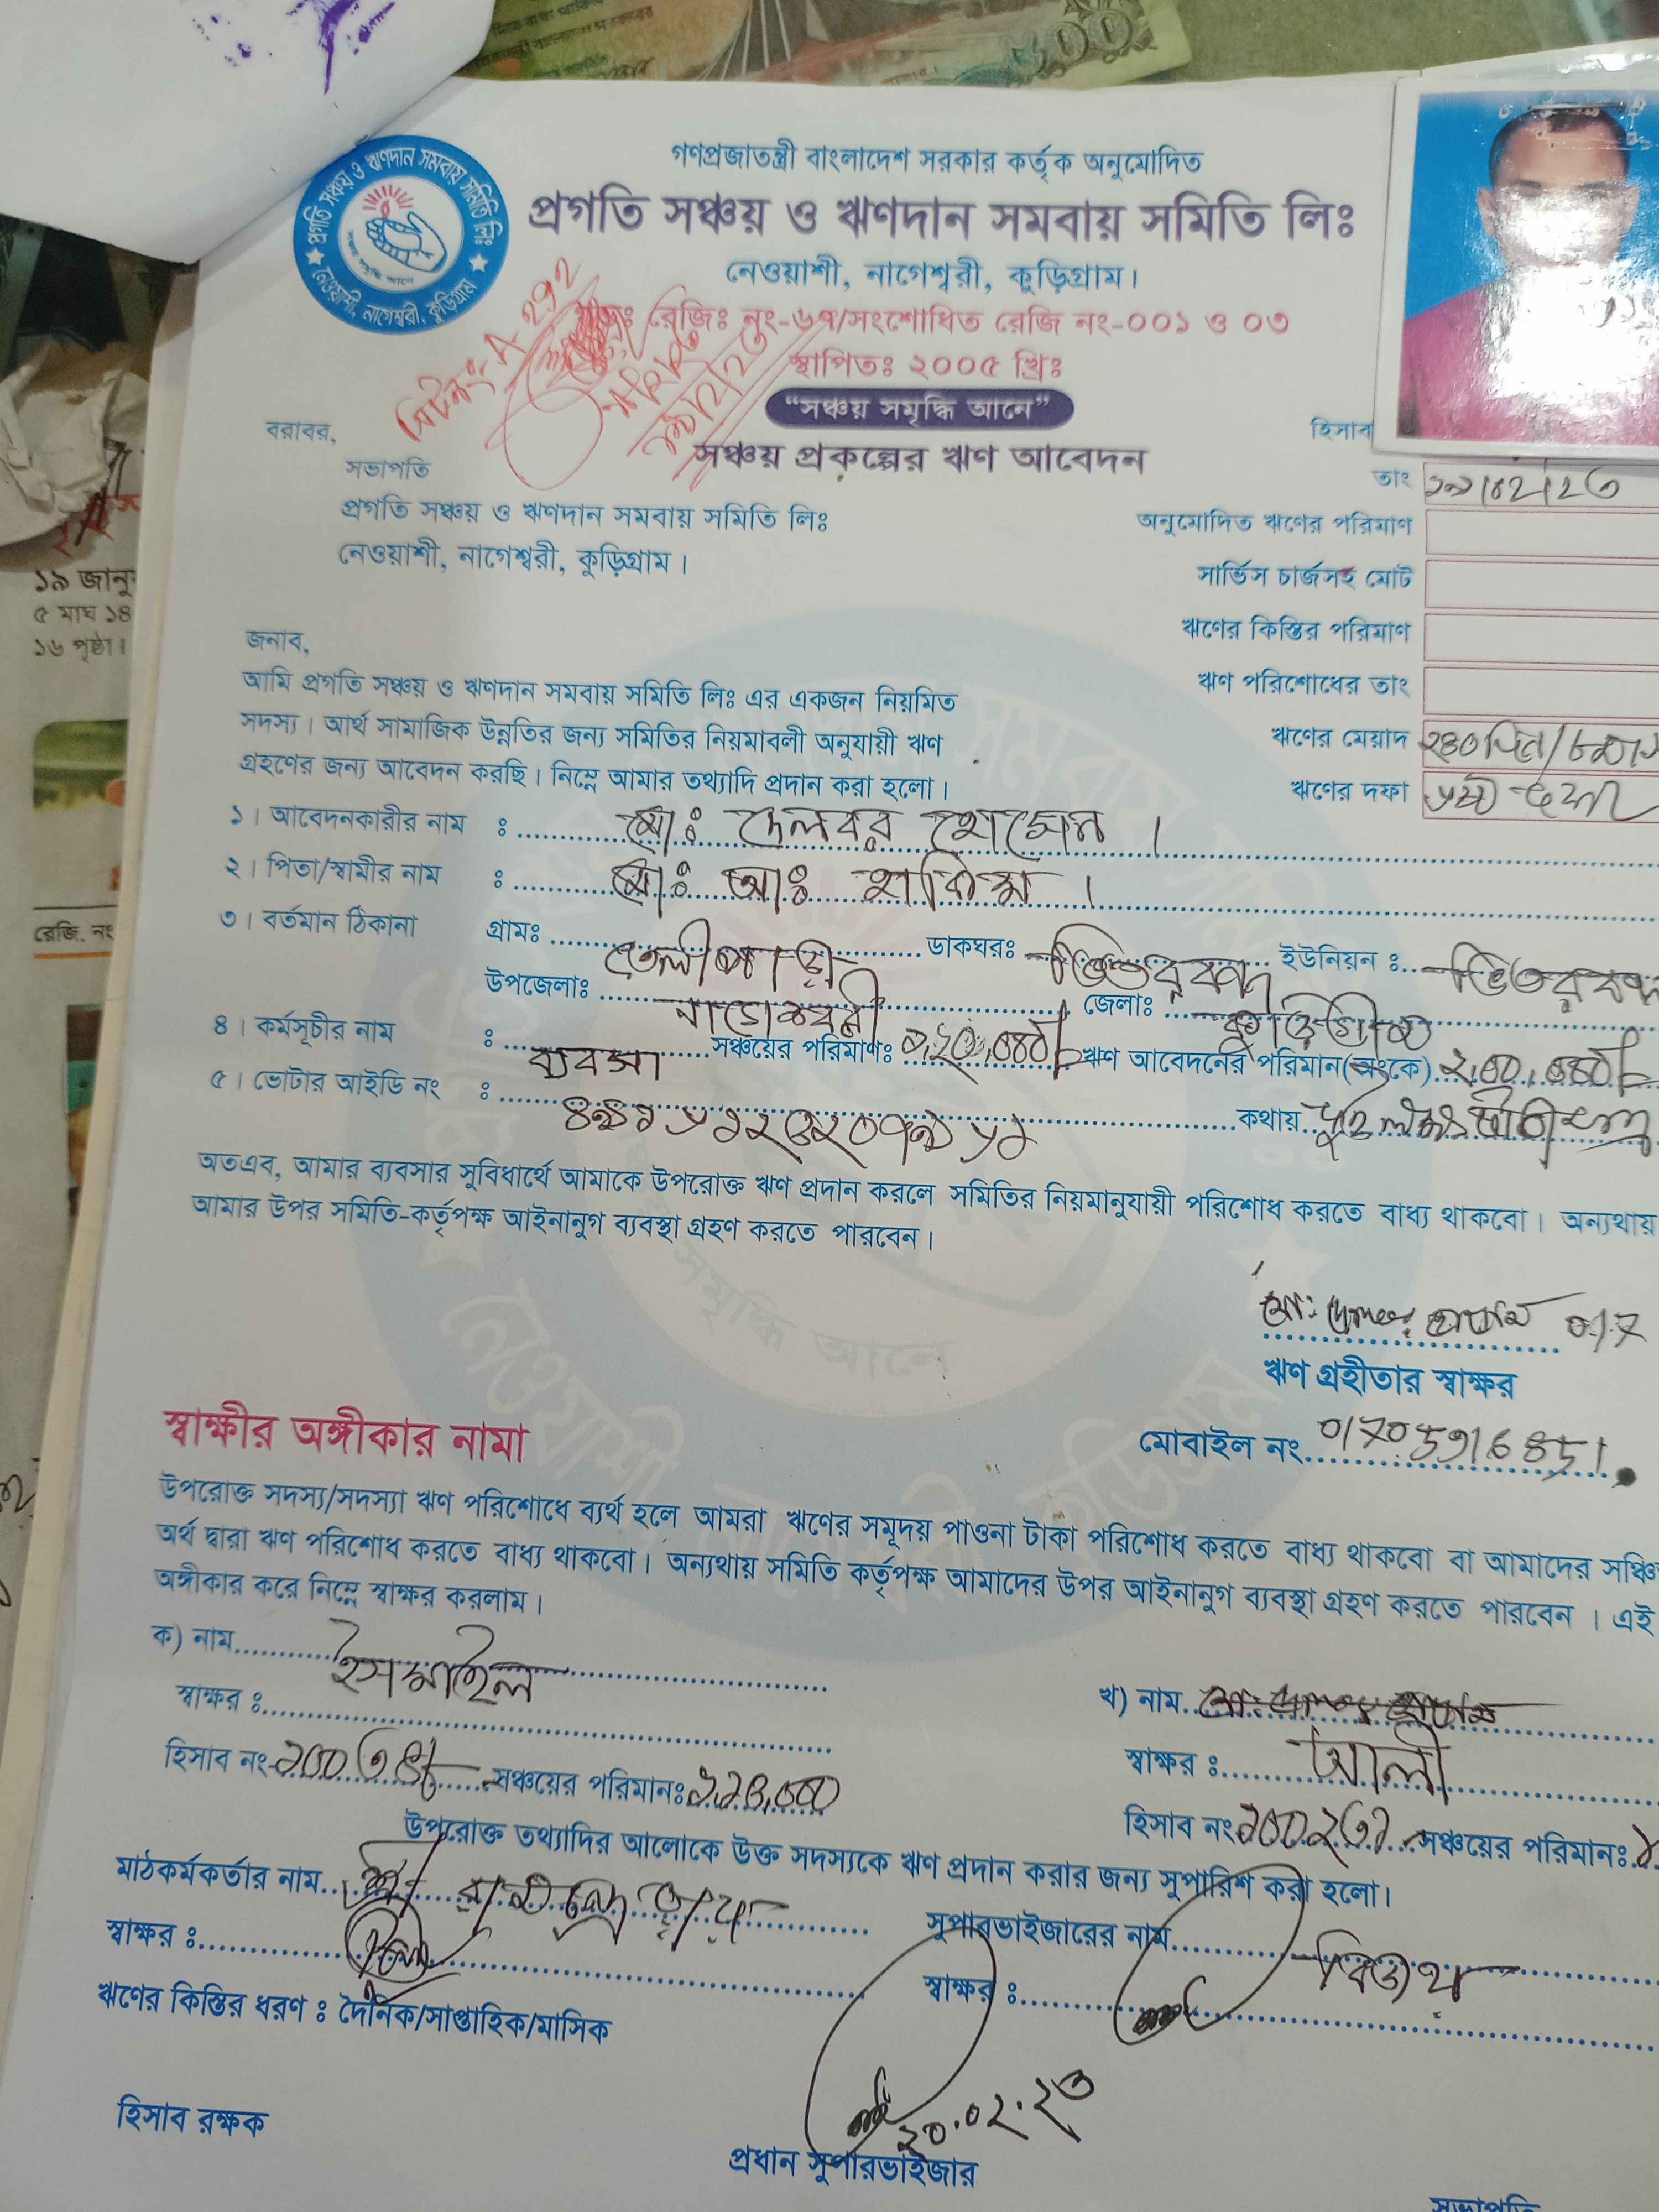 প্রগতি সঞ্চয় ও ঋণদান সমবায় সমিতি লিঃ
নেওয়াশী, নাগেশ্বরী, কুড়িগ্রাম
গণপ্রজাতন্ত্রী বাংলাদেশ সরকার কর্তৃক অনুমোদিত
প্রগতি সঞ্চয় ও ঋণদান সমবায় সমিতি লিঃ
নেওয়াশী, নাগেশ্বরী, কুড়িগ্রাম।
রেজিঃ নং-৬৭/সংশোধিত রেজি নং-০০১ ও ০৩
স্থাপিতঃ ২০০৫ খ্রিঃ
“সঞ্চয় সমৃদ্ধি আনে”
সঞ্চয় প্রকল্পের ঋণ আবেদন
বরাবর,
সভাপতি
প্রগতি সঞ্চয় ও ঋণদান সমবায় সমিতি লিঃ
নেওয়াশী, নাগেশ্বরী, কুড়িগ্রাম।
হিসাব
তাং
অনুমোদিত ঋণের পরিমাণ
সার্ভিস চার্জসহ মোট
ঋণের কিস্তির পরিমাণ
ঋণ পরিশোধের তাং
ঋণের মেয়াদ ২৪০দিন/
ঋণের দফা ১ম দফা
জনাব,
আমি প্রগতি সঞ্চয় ও ঋণদান সমবায় সমিতি লিঃ এর একজন নিয়মিত
সদস্য। আর্থ সামাজিক উন্নতির জন্য সমিতির নিয়মাবলী অনুযায়ী ঋণ
গ্রহণের জন্য আবেদন করছি। নিম্নে আমার তথ্যাদি প্রদান করা হলো।
১। আবেদনকারীর নাম : মোঃ দেলবর হোসেন।
২। পিতা/স্বামীর নাম : মোঃ আঃ হাকিম।
৩। বর্তমান ঠিকানা গ্রামঃ তেলীপাড়া ডাকঘরঃ ভিতরবন্দ ইউনিয়ন : ভিতরবন্দ
উপজেলাঃ নাগেশ্বরী জেলাঃ কুড়িগ্রাম
৪। কর্মসূচীর নাম : ব্যবসা সঞ্চয়ের পরিমাণঃ ঋণ আবেদনের পরিমান(অংকে) ২,০০,০০০/-
৫। ভোটার আইডি নং : কথায় দুই লক্ষ টাকা
অতএব, আমার ব্যবসার সুবিধার্থে আমাকে উপরোক্ত ঋণ প্রদান করলে সমিতির নিয়মানুযায়ী পরিশোধ করতে বাধ্য থাকবো। অন্যথায়
আমার উপর সমিতি-কর্তৃপক্ষ আইনানুগ ব্যবস্থা গ্রহণ করতে পারবেন।
ঋণ গ্রহীতার স্বাক্ষর
মোবাইল নং 01705916851
স্বাক্ষীর অঙ্গীকার নামা
উপরোক্ত সদস্য/সদস্যা ঋণ পরিশোধে ব্যর্থ হলে আমরা ঋণের সমূদয় পাওনা টাকা পরিশোধ করতে বাধ্য থাকবো বা আমাদের সঞ্চি
অর্থ দ্বারা ঋণ পরিশোধ করতে বাধ্য থাকবো। অন্যথায় সমিতি কর্তৃপক্ষ আমাদের উপর আইনানুগ ব্যবস্থা গ্রহণ করতে পারবেন। এই
অঙ্গীকার করে নিম্নে স্বাক্ষর করলাম।
ক) নাম ইসমাইল
স্বাক্ষর :
খ) নাম
স্বাক্ষর : আলী
হিসাব নং- সঞ্চয়ের পরিমানঃ
হিসাব নং সঞ্চয়ের পরিমানঃ
উপরোক্ত তথ্যাদির আলোকে উক্ত সদস্যকে ঋণ প্রদান করার জন্য সুপারিশ করা হলো।
মাঠকর্মকর্তার নাম
স্বাক্ষর :
সুপারভাইজারের নাম বিজয়
স্বাক্ষর :
ঋণের কিস্তির ধরণ : দৈনিক/সাপ্তাহিক/মাসিক
২০.০২.২৩
হিসাব রক্ষক
প্রধান সুপারভাইজার
সভাপতি
১৯ জানু
৫ মাঘ ১৪
১৬ পৃষ্ঠা।
রেজি. নং